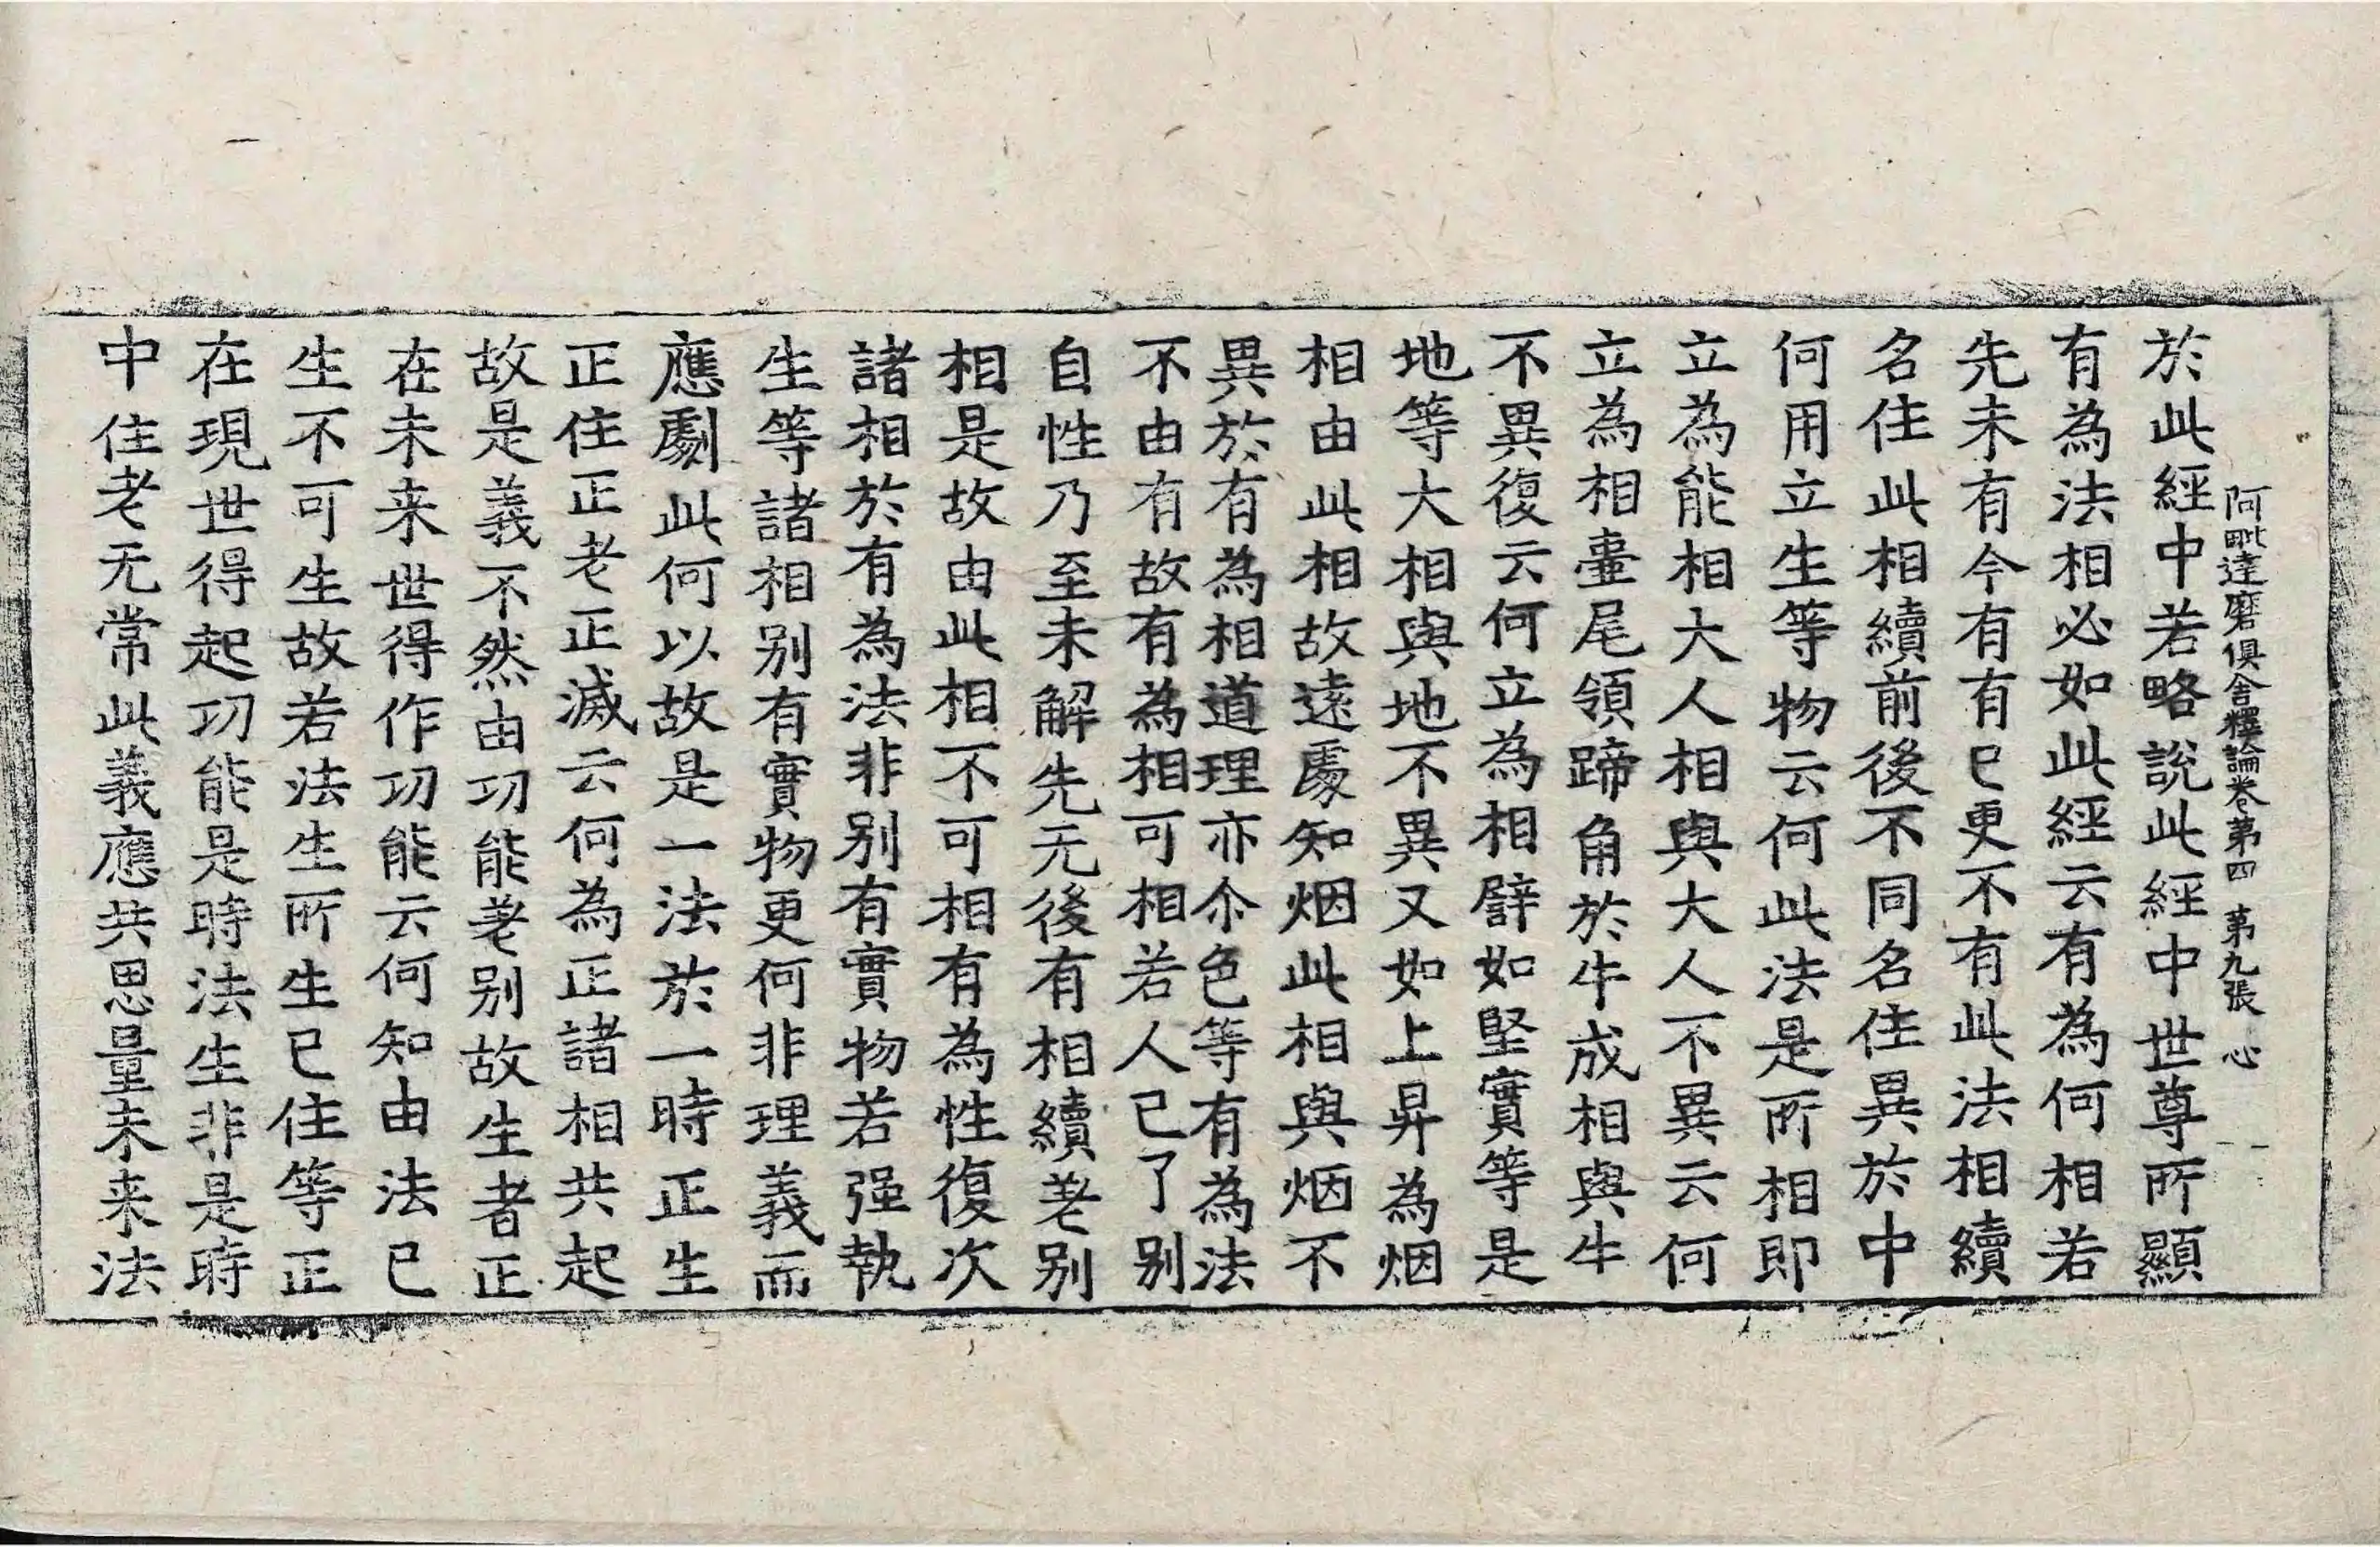 阿毗達磨俱舍釋論卷第四 第九張 心
於此經中若略說此經中世尊所顯
有為法相必如此經云有為何相若
先未有今有有已更不有此法相續
名住此相續前後不同名住異於中
何用立生等物云何此法是所相即
立為能相大人相與大人不異云何
立為相𦎟尾領蹄角於牛成相與牛
不異復云何立為相譬如堅實等是
地等大相與地不異又如上昇為烟
相由此相故遠處知烟此相與烟不
異於有為相道理亦尒色等有為法
不由有故有為相可相若人已了別
自性乃至未解先无後有相續老別
相是故由此相不可相有為性復次
諸相於有為法非別有實物若强執
生等諸相別有實物更何非理義而
應劇此何以故是一法於一時正生
正住正老正滅云何為正諸相共起
故是義不然由功能老別故生者正
在未来世得作功能云何知由法已
生不可生故若法生所生已住等正
在現世得起功能是時法生非是時
中住老无常此義應共思量未来法